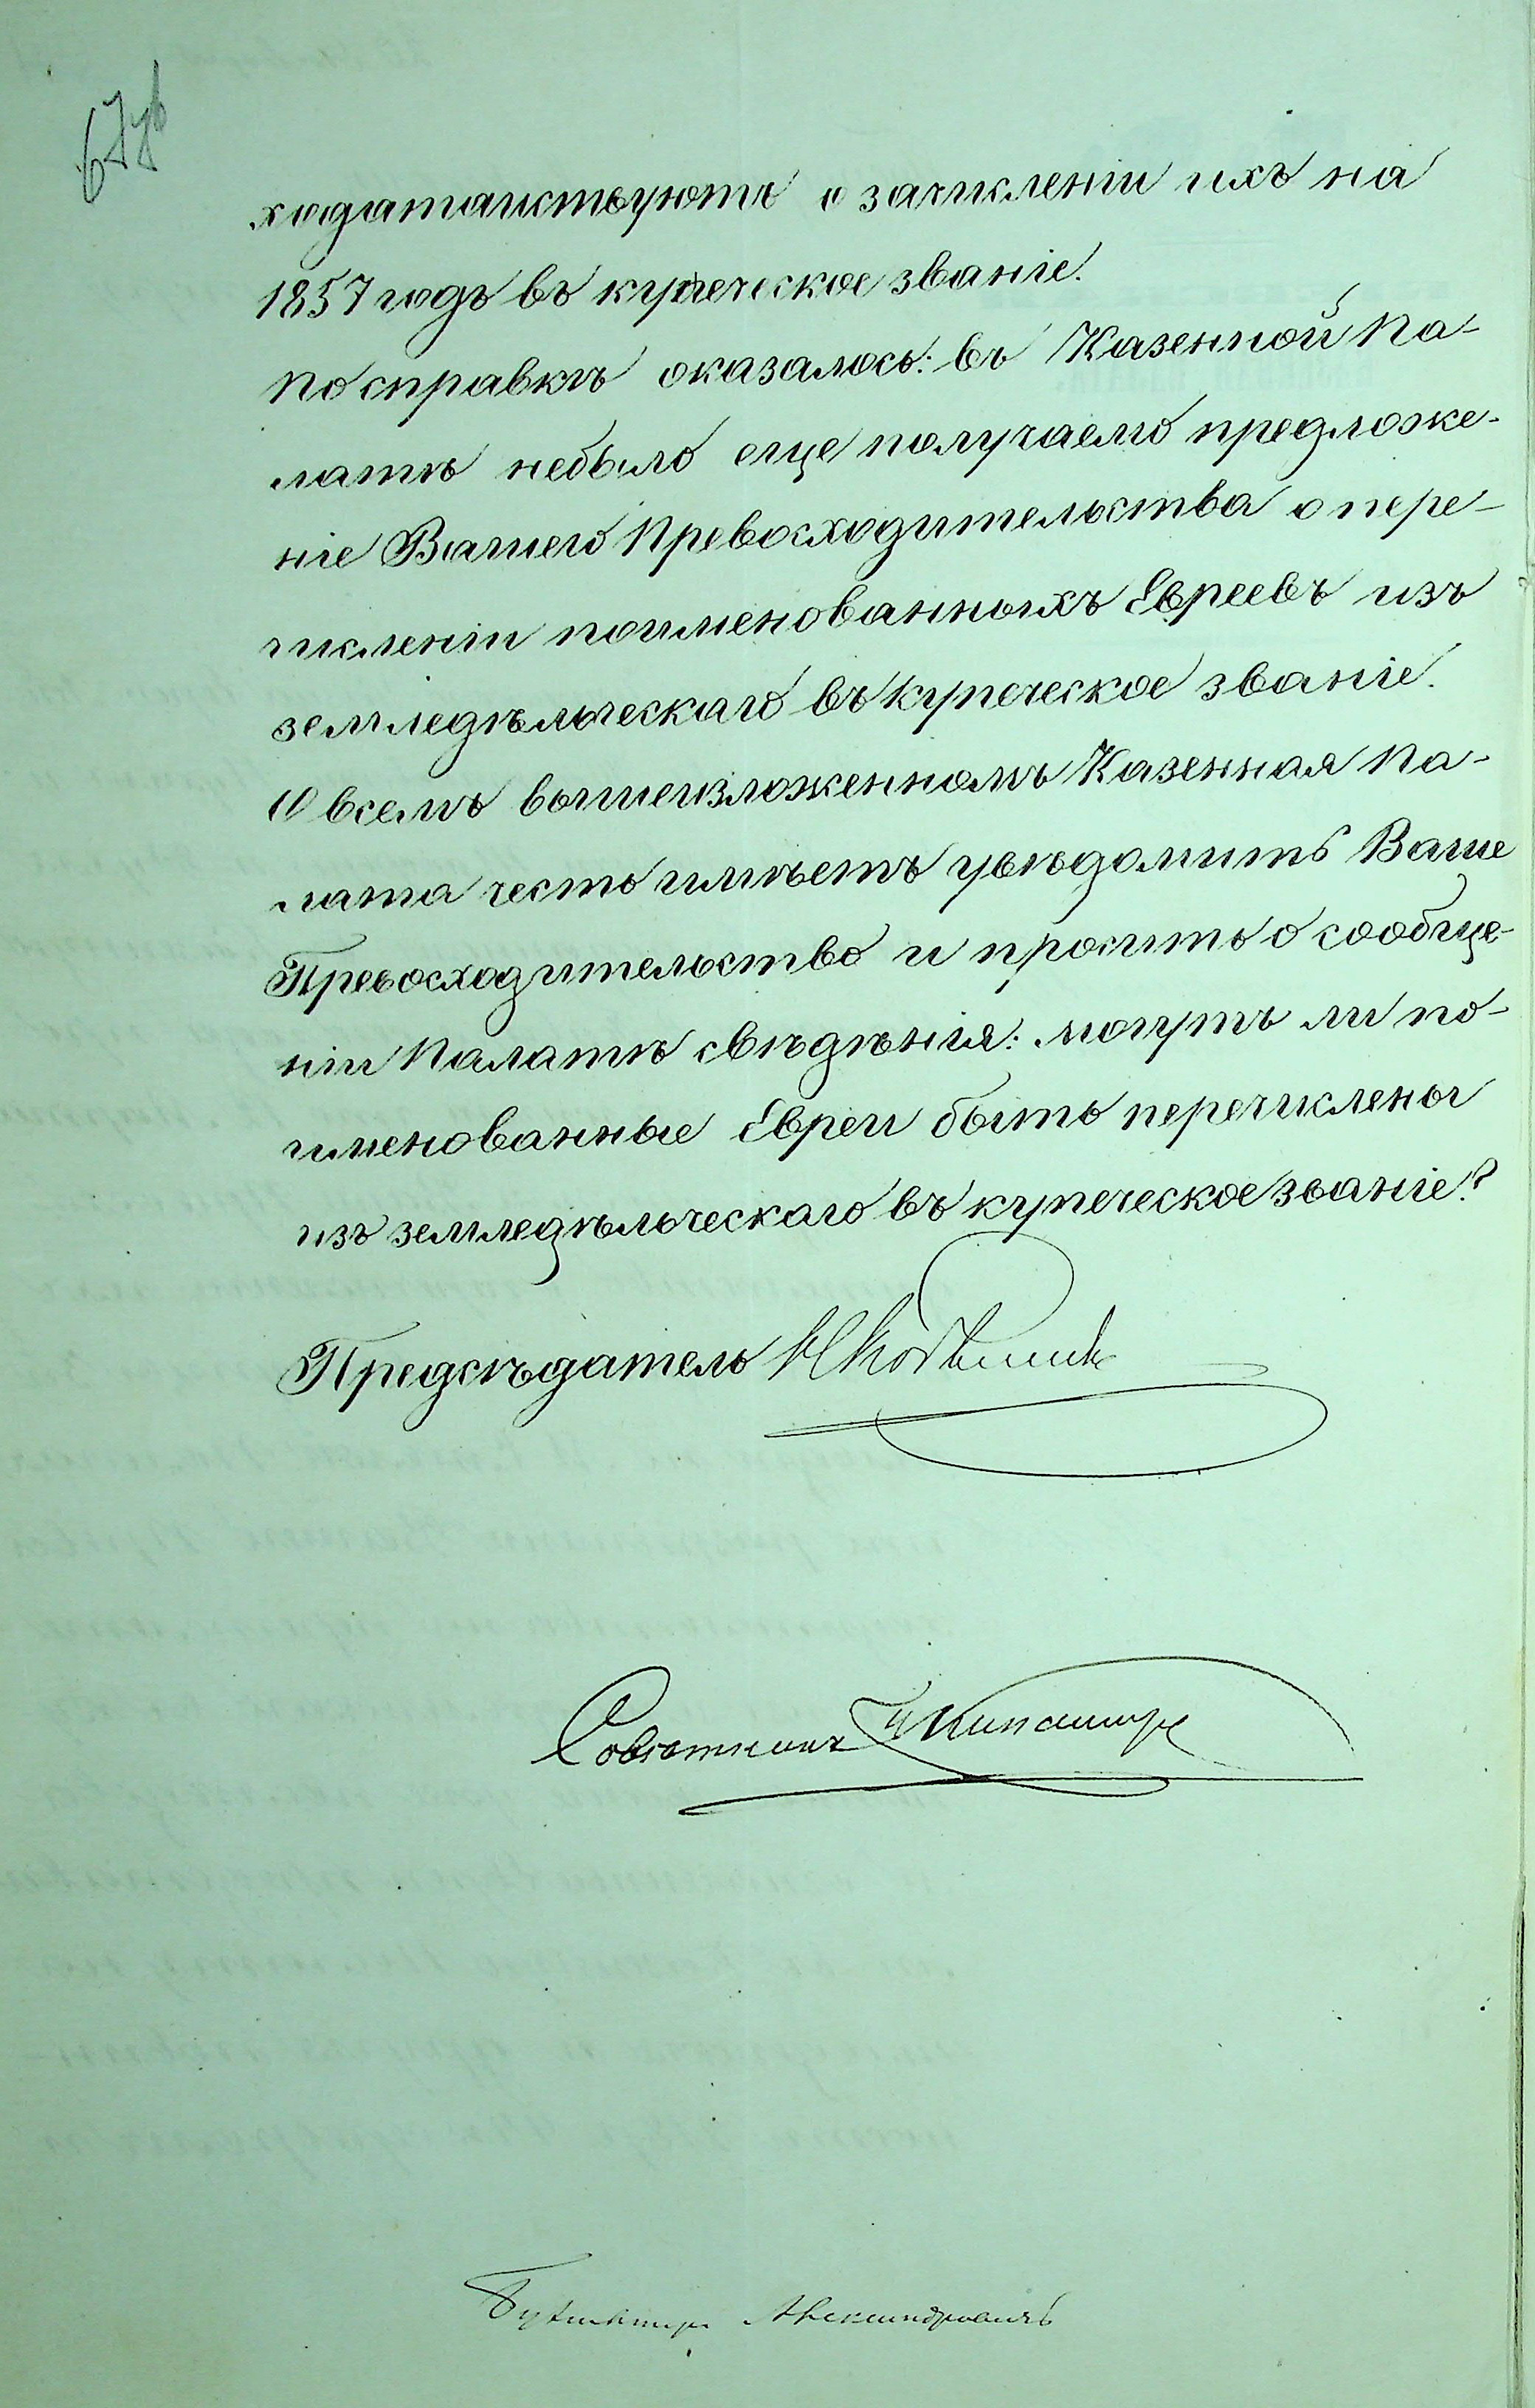 ходатайствуютъ о зачисленіи ихъ на
1857 годъ въ купеческое званіе.
По справкѣ оказалось: въ Казенной Па-
латѣ небыло еще получаемо предложе-
ніе Вашего Превосходительства о пере-
численіи поименованныхъ Евреевъ изъ
земледѣльческаго въ купеческое званіе.
О всемъ вышеизложенномъ Казенная Па-
лата честь имѣетъ увѣдомить Ваше
Превосходительство и просить о сообще-
ніи Палатѣ свѣдѣнія: могутъ ли по-
именованные Евреи быть перечислены
изъ земледѣльческаго въ купеческое званіе?
Предсѣдатель
Совѣтникъ
Бухгалтеръ Александровичъ